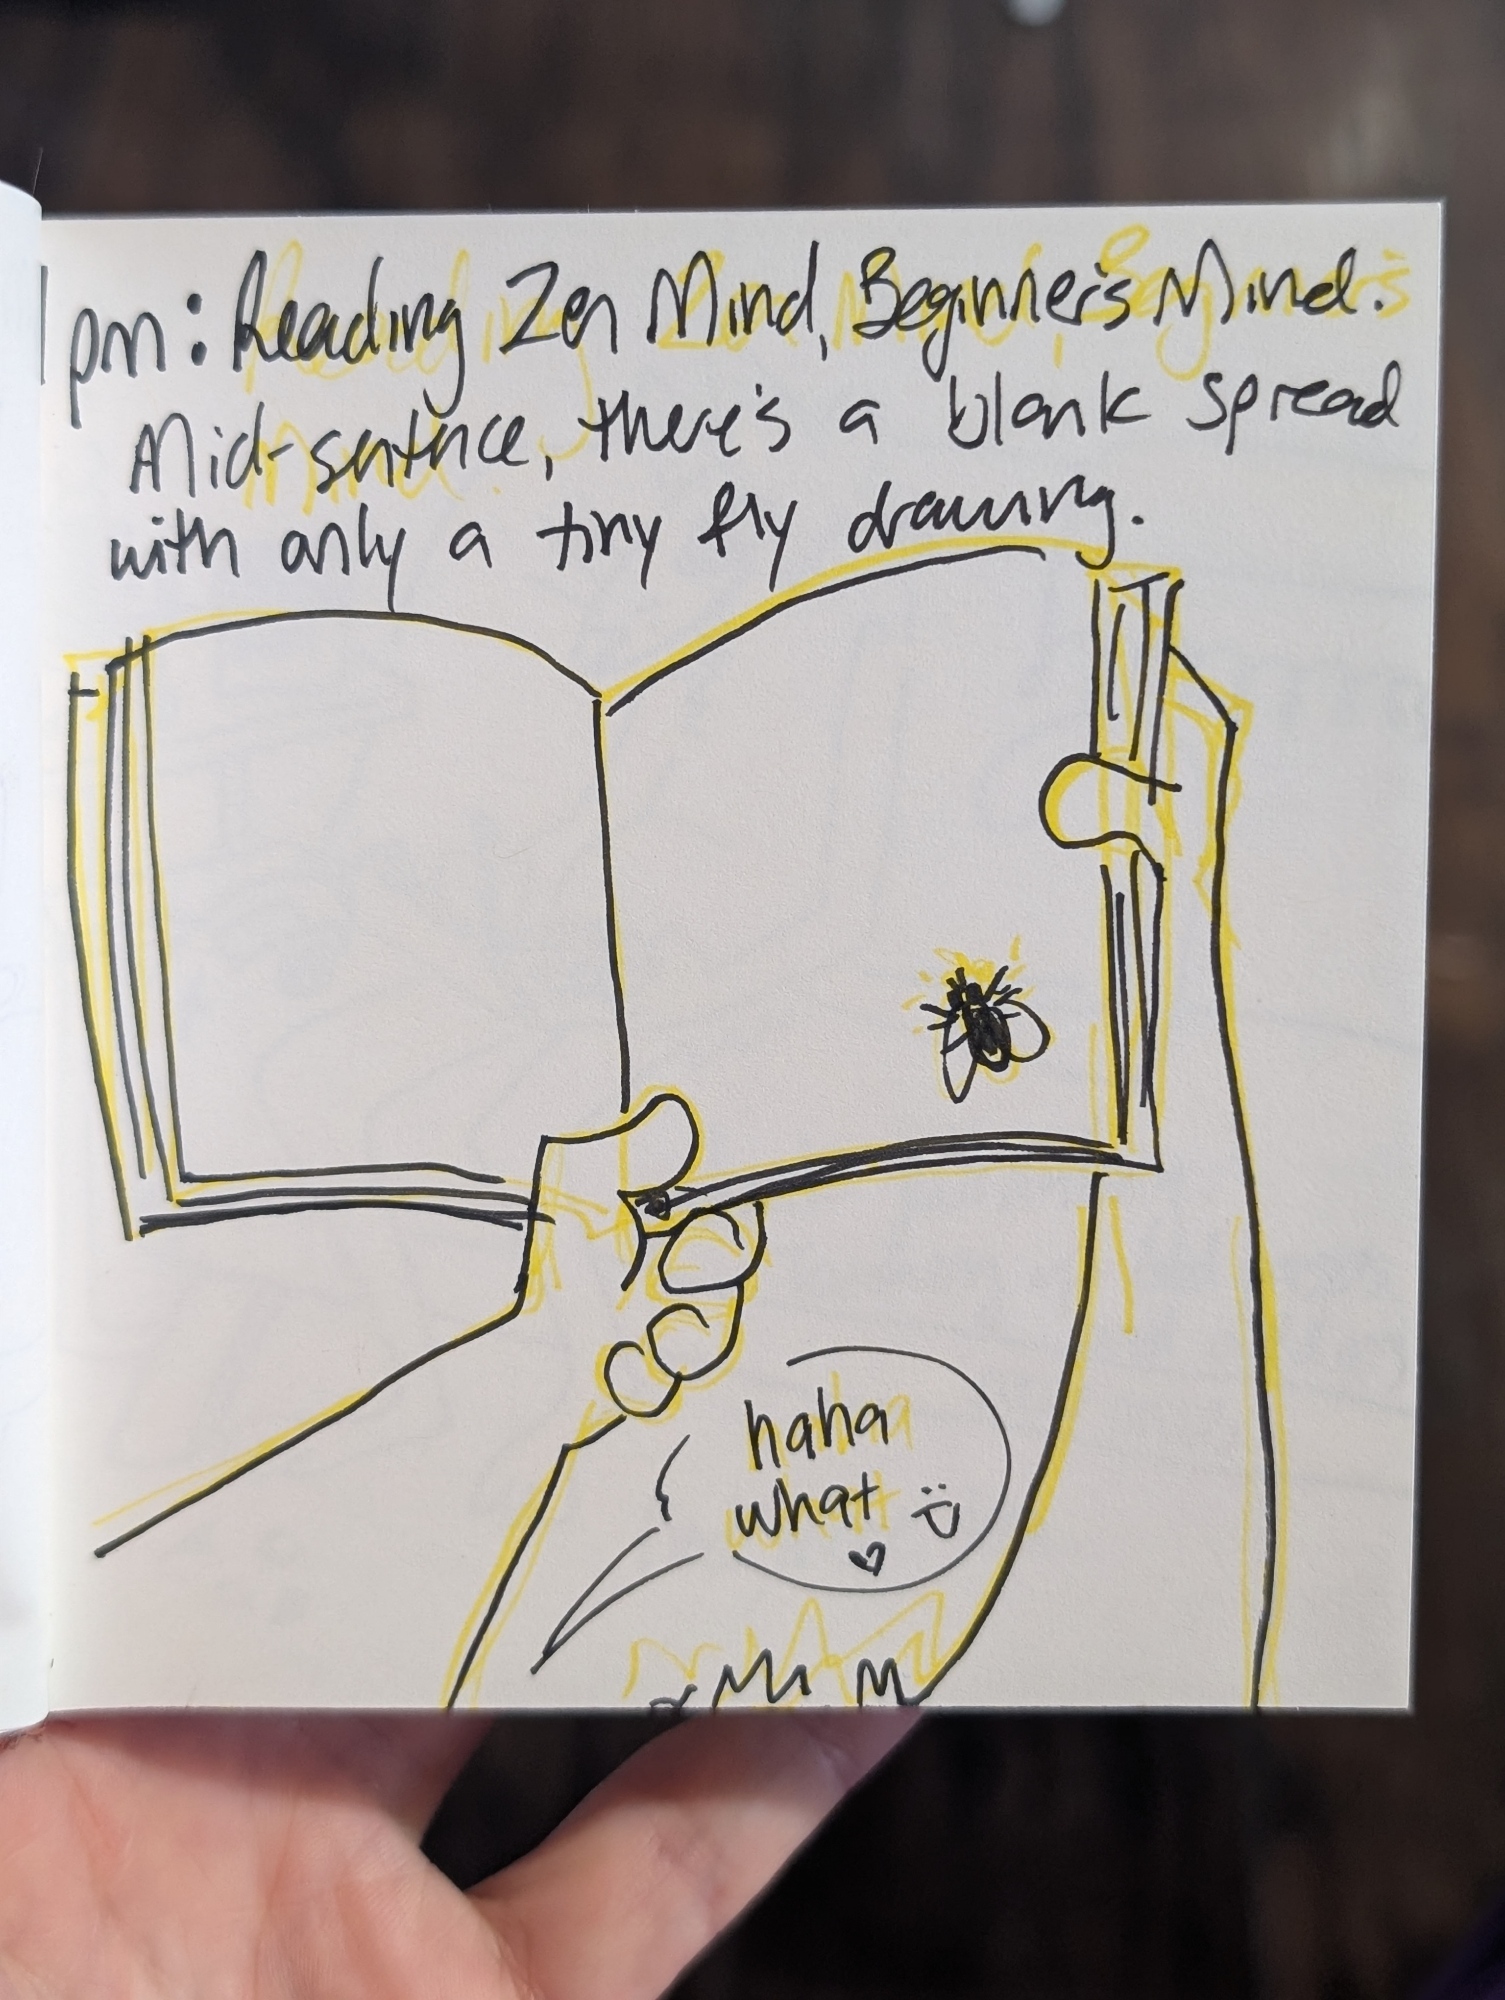 1 pm: Reading Zen Mind, Beginner's Mind.
Mid-sentence, there's a blank spread
with only a tiny fly drawing.
haha
what